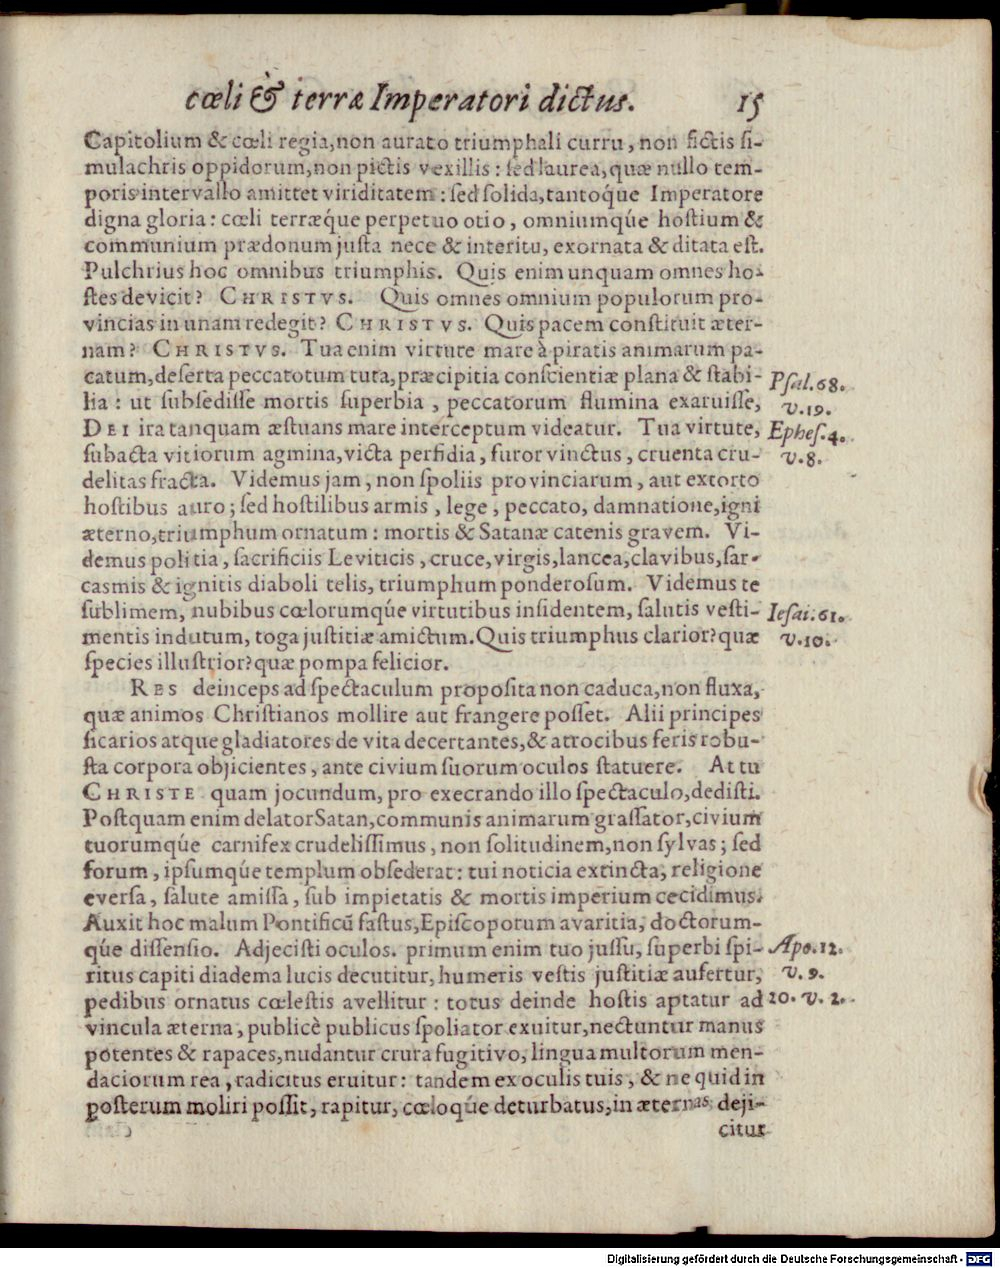 cœli & terræ Imperatori dictus. 15
Capitolium & cœli regia, non aurato triumphali curru, non fictis si-
mulachris oppidorum, non pictis vexillis: sed laurea, quæ nullo tem-
poris intervallo amittet viriditatem: sed solida, tantoq́ue Imperatore
digna gloria: cœli terræq́ue perpetuo otio, omniumq́ue hostium &
communium prædonum justa nece & interitu, exornata & ditata est.
Pulchrius hoc omnibus triumphis. Quis enim unquam omnes ho-
stes devicit? CHRISTVS. Quis omnes omnium populorum pro-
vincias in unam redegit? CHRISTVS. Quis pacem constituit æter-
nam? CHRISTVS. Tua enim virtute mare à piratis animarum pa-
catum, deserta peccatotum tuta, præcipitia conscientiæ plana & stabi-
lia: ut subsedisse mortis superbia, peccatorum flumina exaruisse,
DEI ira tanquam æstuans mare interceptum videatur. Tua virtute,
subacta vitiorum agmina, victa perfidia, furor vinctus, cruenta cru-
delitas fracta. Videmus jam, non spoliis provinciarum, aut extorto
hostibus auro; sed hostilibus armis, lege, peccato, damnatione, igni
æterno, triumphum ornatum: mortis & Satanæ catenis gravem. Vi-
demus politia, sacrificiis Leviticis, cruce, virgis, lancea, clavibus, sar-
casmis & ignitis diaboli telis, triumphum ponderosum. Videmus te
sublimem, nubibus cœlorumq́ue virtutibus insidentem, salutis vesti-
mentis indutum, toga justitiæ amictum. Quis triumphus clarior? quæ
species illustrior? quæ pompa felicior.
RES deinceps ad spectaculum proposita non caduca, non fluxa,
quæ animos Christianos mollire aut frangere posset. Alii principes
sicarios atque gladiatores de vita decertantes, & atrocibus feris robu-
sta corpora objicientes, ante civium suorum oculos statuere. At tu
CHRISTE quam jocundum, pro execrando illo spectaculo, dedisti.
Postquam enim delator Satan, communis animarum grassator, civium
tuorumq́ue carnifex crudelissimus, non solitudinem, non sylvas; sed
forum, ipsumq́ue templum obsederat: tui noticia extincta, religione
eversa, salute amissa, sub impietatis & mortis imperium cecidimus.
Auxit hoc malum Pontificū fastus, Episcoporum avaritia, doctorum-
q́ue dissensio. Adjecisti oculos. primum enim tuo jussu, superbi spi-
ritus capiti diadema lucis decutitur, humeris vestis justitiæ aufertur,
pedibus ornatus cœlestis avellitur: totus deinde hostis aptatur ad
vincula æterna, publicè publicus spoliator exuitur, nectuntur manus
potentes & rapaces, nudantur crura fugitivo, lingua multorum men-
daciorum rea, radicitus eruitur: tandem ex oculis tuis, & ne quid in
posterum moliri possit, rapitur, cœloq́ue deturbatus, in æternas deji-
citur
Psal. 68.
v. 19.
Ephes. 4.
v. 8.
Iesai. 61.
v. 10.
Apo. 12.
v. 9.
20. v. 2.
Digitalisierung gefördert durch die Deutsche Forschungsgemeinschaft - DFG